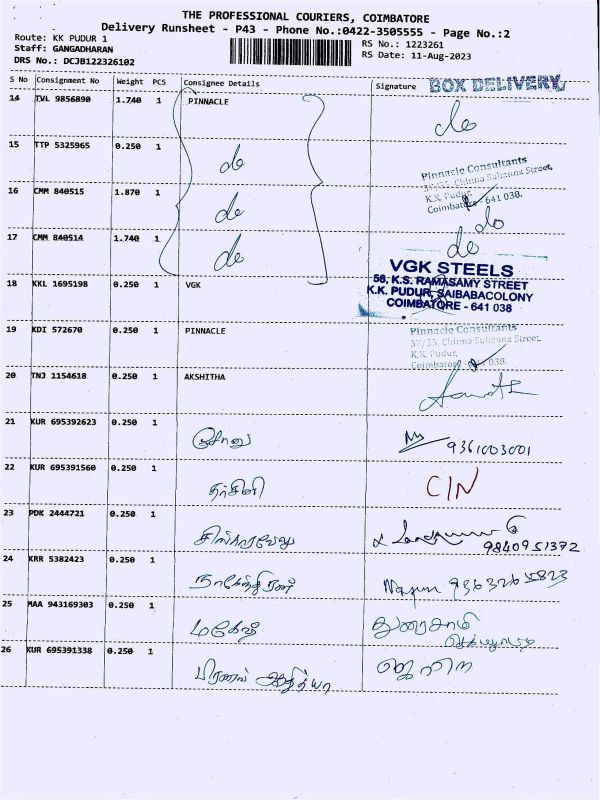 THE PROFESSIONAL COURIERS, COIMBATORE
Delivery Runsheet - P43 - Phone No.:0422-3505555 - Page No.:2
Route: KK PUDUR 1
Staff: GANGADHARAN
DRS No.: DCJB122326102
RS No.: 1223261
RS Date: 11-Aug-2023
S No Consignment No Weight PCS Consignee Details Signature BOX DELIVERY
14 TVL 9856890 1.740 1 PINNACLE do
15 TTP 5325965 0.250 1 do
Pinnacle Consultants
37/33, Chinna Subanna Street,
K.K. Pudur,
Coimbatore - 641 038.
16 CMM 840515 1.870 1 do do
17 CMM 840514 1.740 1 do do
VGK STEELS
56, K.S. RAMASAMY STREET
K.K. PUDUR, SAIBABACOLONY
COIMBATORE - 641 038
18 KKL 1695198 0.250 1 VGK
19 KDI 572670 0.250 1 PINNACLE
Pinnacle Consultants
37/33, Chinna Subanna Street,
K.K. Pudur,
Coimbatore - 641 038.
20 TNJ 1154618 0.250 1 AKSHITHA
21 KUR 695392623 0.250 1 9361003001
22 KUR 695391560 0.250 1 தர்சினி C/N
23 PDK 2444721 0.250 1 சிங்காரவேலு
9840951372
24 KRR 5382423 0.250 1 நாகேந்திரன் 9363265823
25 MAA 943169303 0.250 1 மகேஷ் துரைசாமி
26 KUR 695391338 0.250 1 பிரணவ் ஆதித்யா